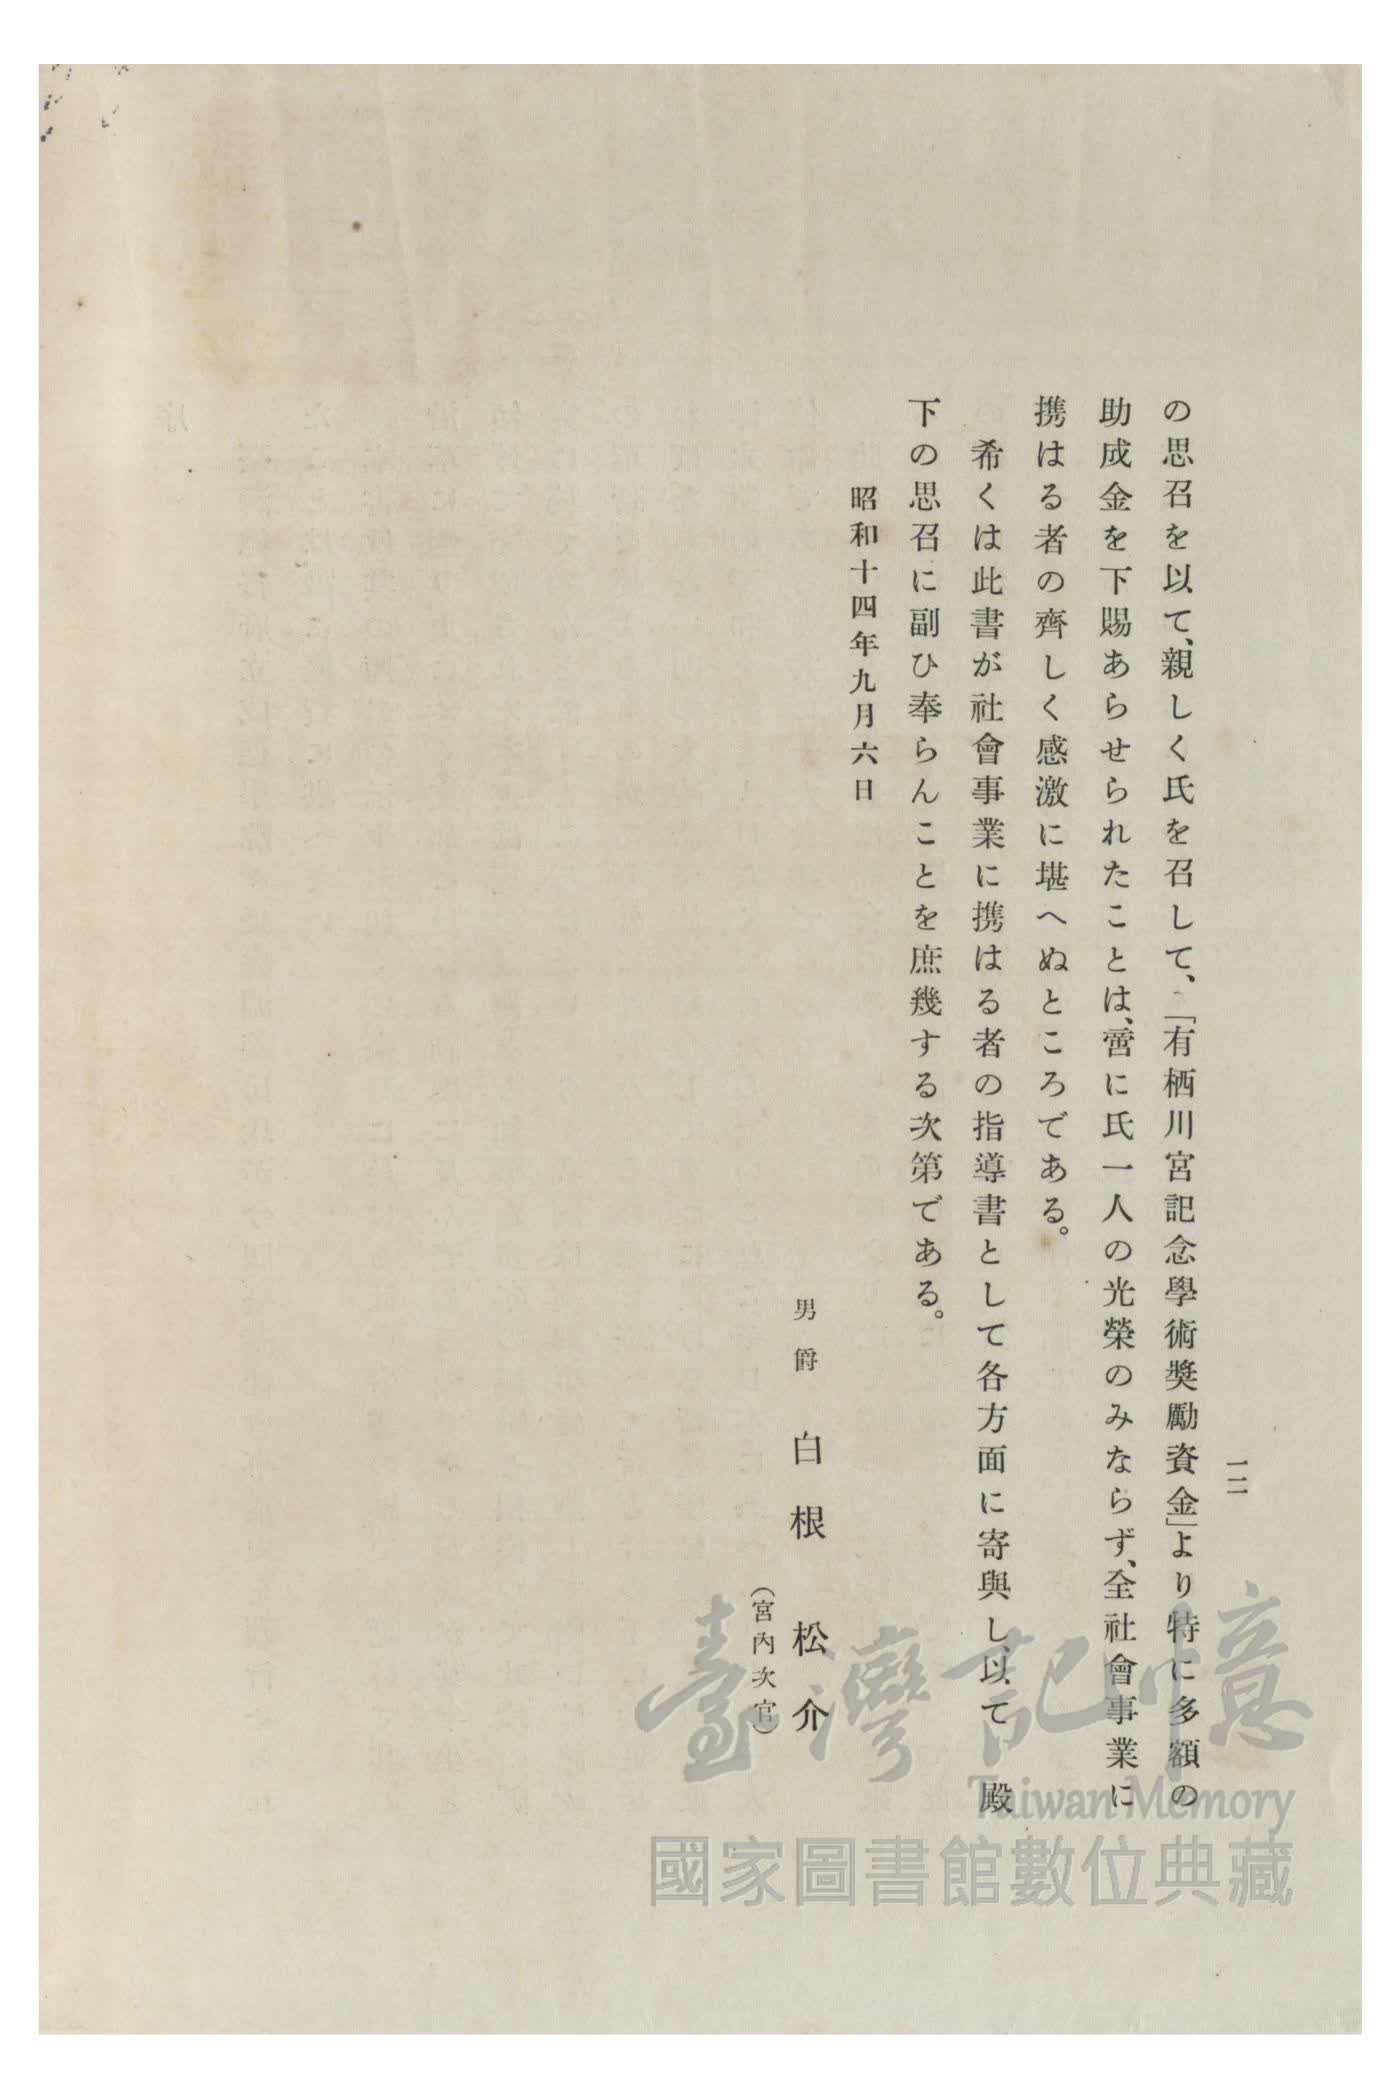 一二
の思召を以て、親しく氏を召して、「有栖川宮記念學術奬勵資金」より特に多額の
助成金を下賜あらせられたことは、啻に氏一人の光榮のみならず、全社會事業に
携はる者の齊しく感激に堪へぬところである。
希くは此書が社會事業に携はる者の指導書として各方面に寄與し以て 殿
下の思召に副ひ奉らんことを庶幾する次第である。
昭和十四年九月六日
男爵 白根 松介
（宮內次官）
臺灣記憶
Taiwan Memory
國家圖書館數位典藏